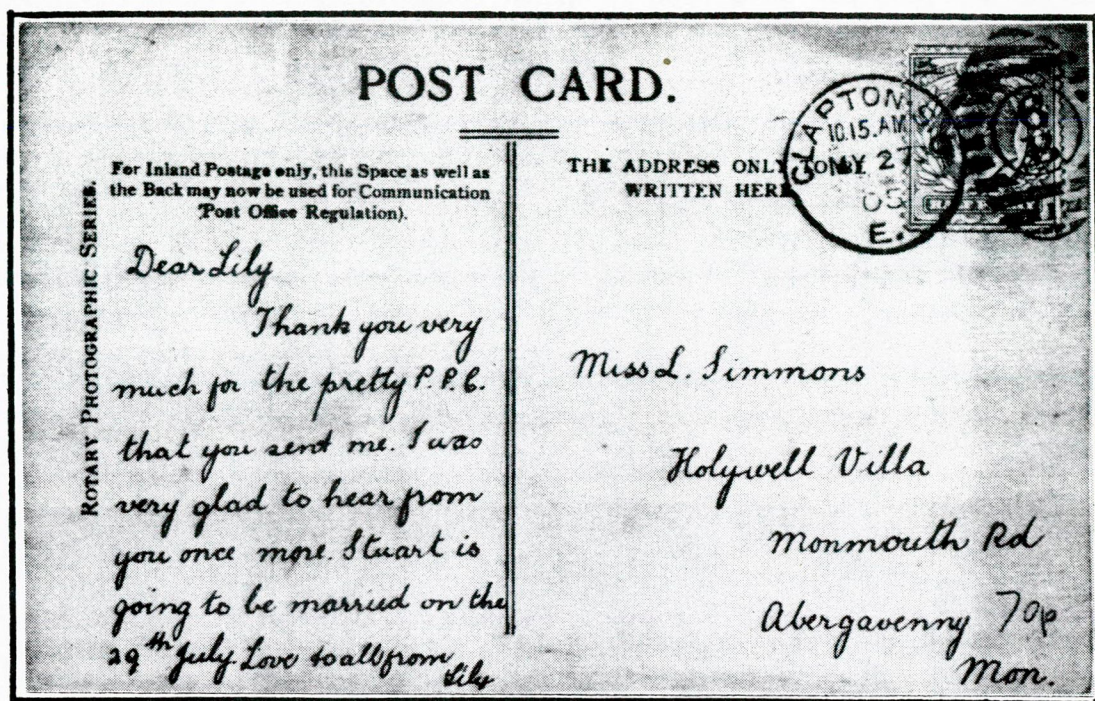 POST CARD.
For Inland Postage only, this Space as well as
the Back may now be used for Communication
(Post Office Regulation).
THE ADDRESS ONLY TO BE
WRITTEN HERE
CLAPTON
10.15.AM
MY 27
05
E.
ROTARY PHOTOGRAPHIC SERIES.
Dear Lily
Thank you very
much for the pretty P.P.C.
that you sent me. I was
very glad to hear from
you once more. Stuart is
going to be married on the
29th July. Love to all from
Lily
Miss L. Simmons
Holywell Villa
Monmouth Rd
Abergavenny 70p
Mon.